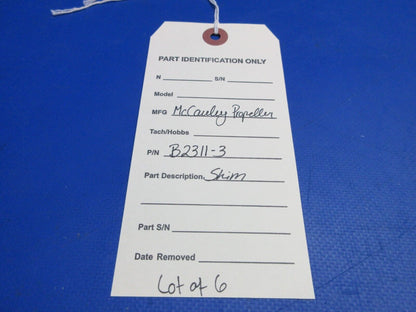 PART IDENTIFICATION ONLY
N S/N
Model
MFG McCauley Propeller
Tach/Hobbs
P/N B2311-3
Part Description. Shim
Part S/N
Date Removed
Lot of 6